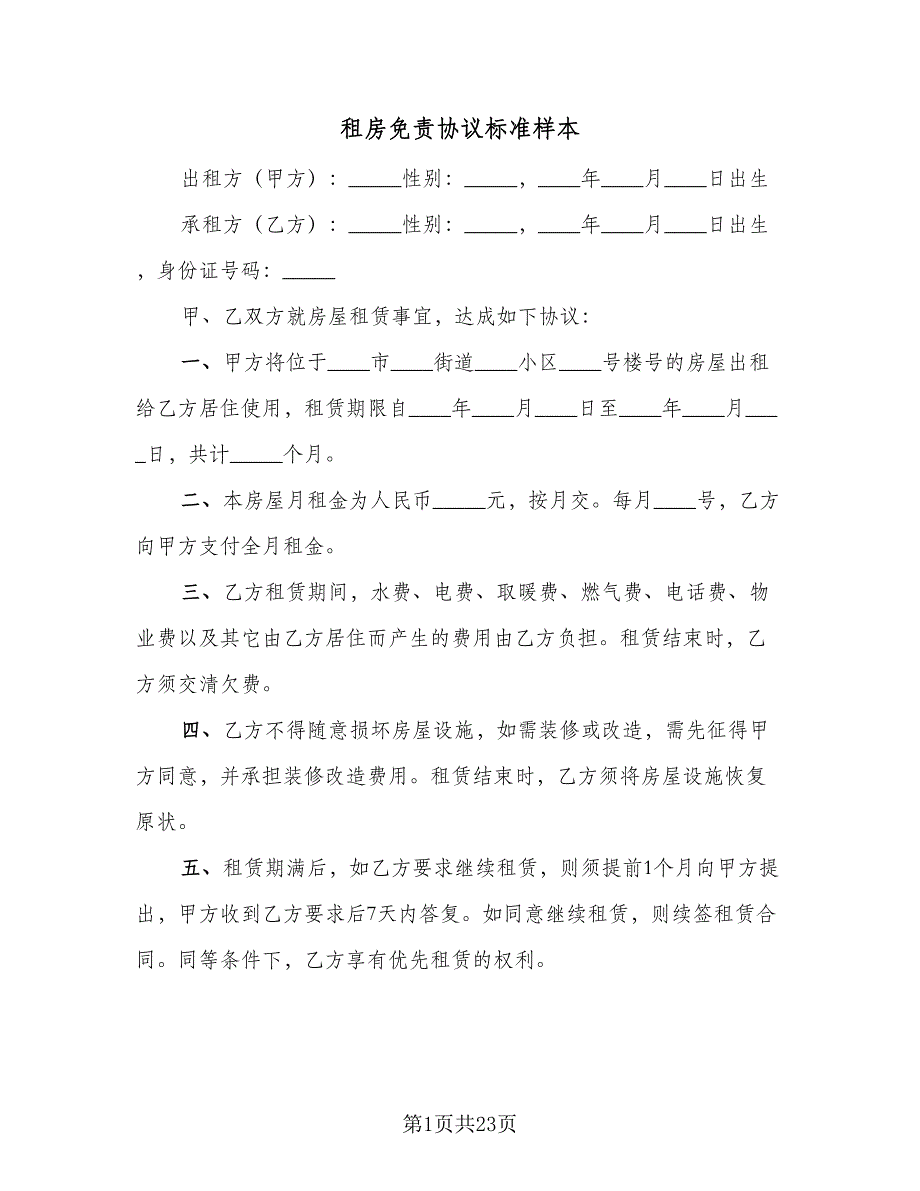 租房免责协议标准样本
出租方（甲方）：_____性别：_____，____年____月____日出生
承租方（乙方）：_____性别：_____，____年____月____日出生
，身份证号码：_____
甲、乙双方就房屋租赁事宜，达成如下协议：
一、甲方将位于____市____街道____小区____号楼号的房屋出租
给乙方居住使用，租赁期限自____年____月____日至____年____月___
_日，共计_____个月。
二、本房屋月租金为人民币_____元，按月交。每月____号，乙方
向甲方支付全月租金。
三、乙方租赁期间，水费、电费、取暖费、燃气费、电话费、物
业费以及其它由乙方居住而产生的费用由乙方负担。租赁结束时，乙
方须交清欠费。
四、乙方不得随意损坏房屋设施，如需装修或改造，需先征得甲
方同意，并承担装修改造费用。租赁结束时，乙方须将房屋设施恢复
原状。
五、租赁期满后，如乙方要求继续租赁，则须提前1个月向甲方提
出，甲方收到乙方要求后7天内答复。如同意继续租赁，则续签租赁合
同。同等条件下，乙方享有优先租赁的权利。
第1页共23页